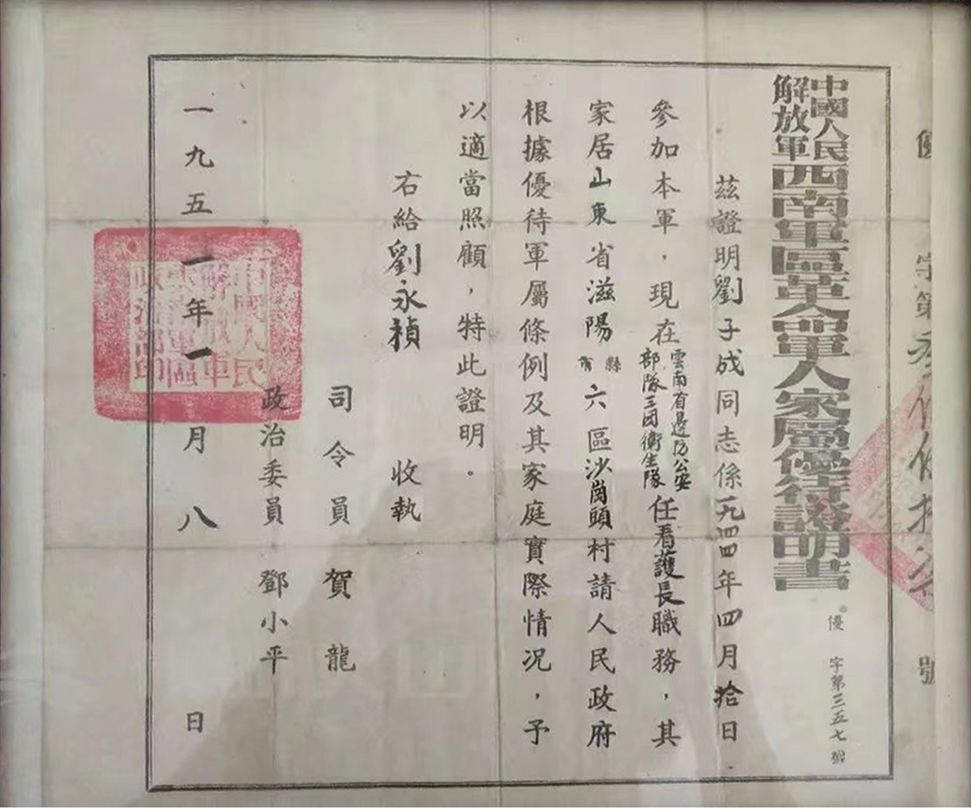 中國人民解放軍西南軍區革命軍人家屬優待證明書
優字第三五七號
茲證明劉子成同志係一九四四年四月拾日
參加本軍,現在雲南省邊防公安部隊三团衛生隊任看護長職務,其
家居山東省滋陽縣六區沙崗頭村請人民政府
根據優待軍屬條例及其家庭實際情況,予
以適當照顧,特此證明。
右給劉永禎 收執
司令員 賀龍
政治委員 鄧小平
一九五一年一月八日
字第
號